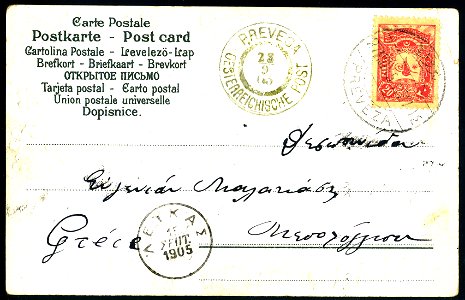 Carte Postale
Postkarte - Post card
Cartolina Postale - Levelező-Lap
Brefkort - Briefkaart - Brevkort
ОТКРЫТОЕ ПИСЬМО
Tarjeta postal - Carto postal
Union postale universelle
Dopisnice.
PREVESA
OESTERREICHISCHE POST
PREVEZA
Δεσποινίδα
Ευγενίαν
Grèce
ΛΕΥΚΑΣ
ΣΕΠΤ.
1905